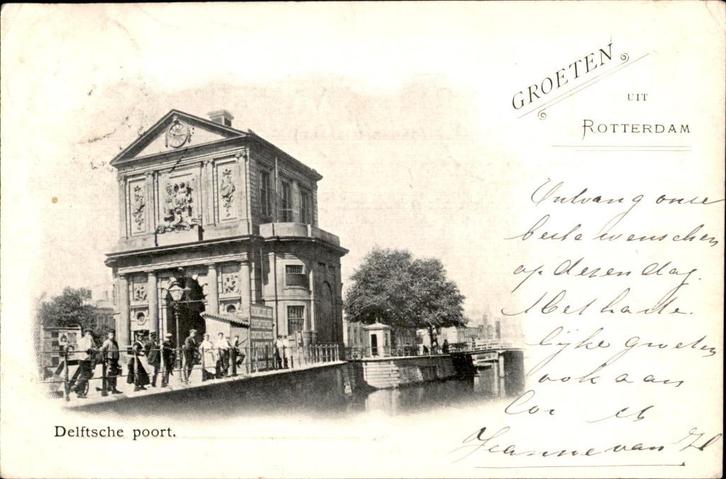 GROETEN
UIT
ROTTERDAM
Ontvang onze
beste wenschen
op dezen dag.
Met harte
lijke groeten
ook aan
Jeanne van
Delftsche poort.